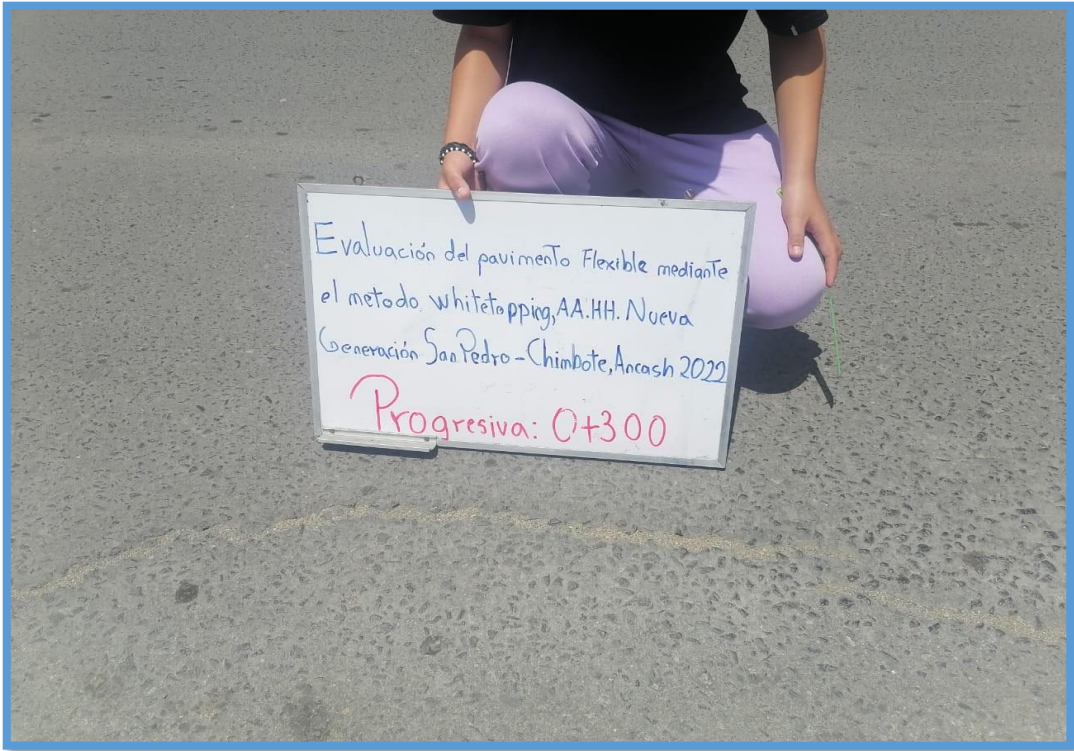 Evaluación del pavimento Flexible mediante
el metodo. whitetopping, AA.HH. Nueva
Generación San Pedro - Chimbote, Ancash 2022
Progresiva: 0+300